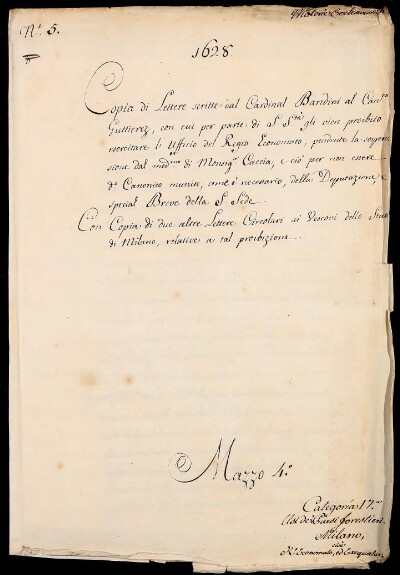 Materie Ecclesiastiche
N.º 5.
1628.
Copia di Lettere scritte dal Cardinal Bandini al Can.co
Guttierez, con cui per parte di S. S.tà gli vien proibito
esercitare l' Ufficio del Regio Economato, pendente la
sione dal med.mo di Monsig.r Caccia, e ciò per non essere
d.º Canonico munito, com'è necessario, della Deputazione, e
special Breve della S. Sede.
Con Copia di due altre Lettere Circolari ai Vescovi dello Stato
di Milano, relative a tal proibizione.
Mazzo 4.º
Categoria 17.ma
Usi de' Paesi forestieri.
Milano,
cioè
R.º Economato, ed Exequatur.